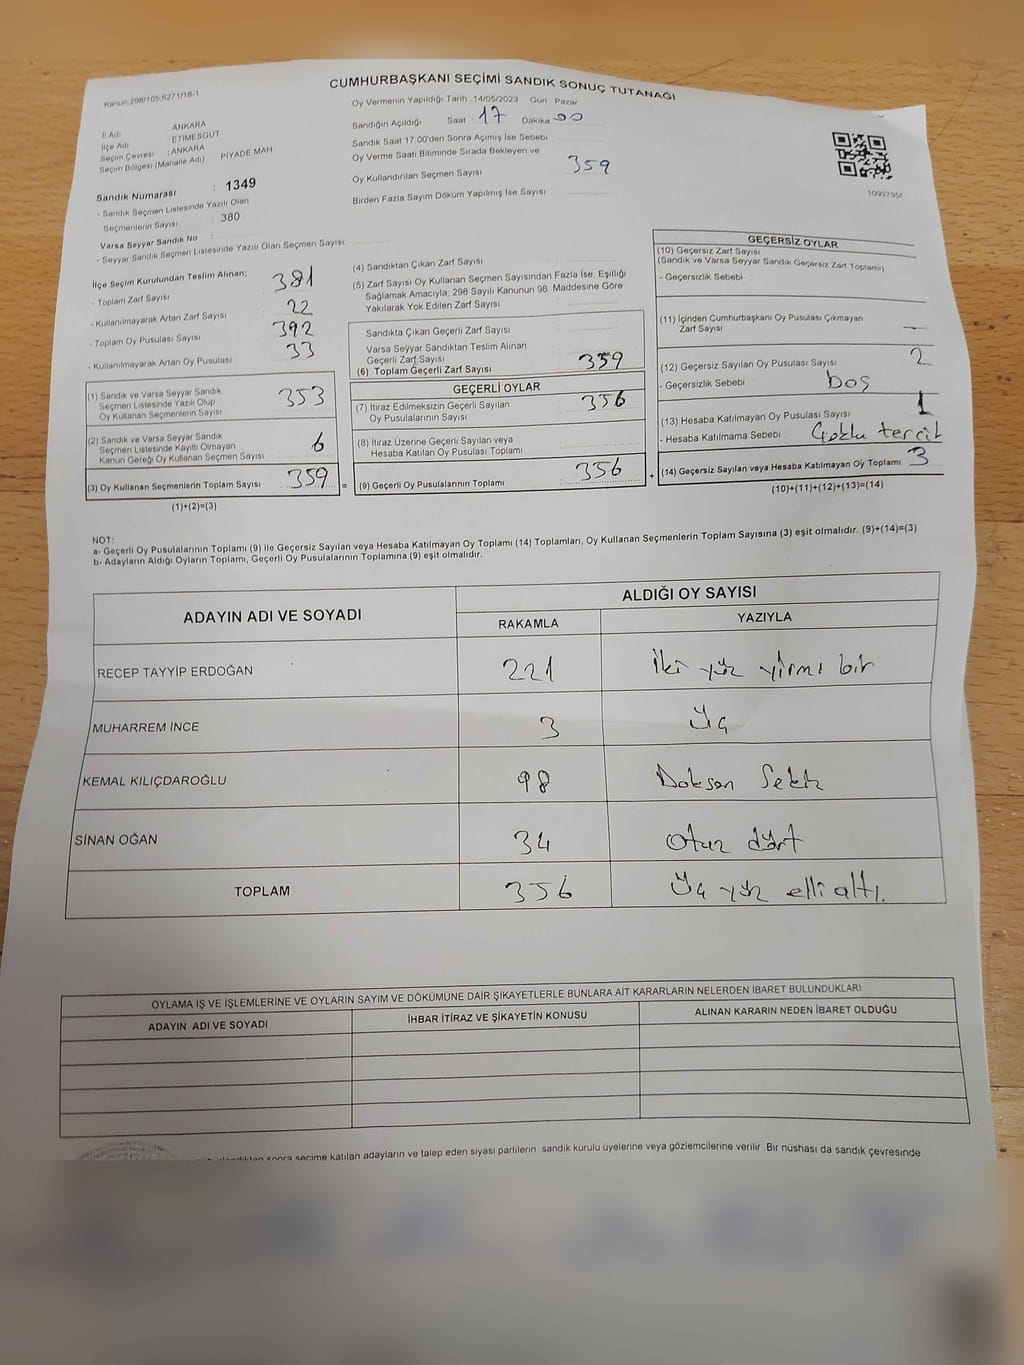 CUMHURBAŞKANI SEÇİMİ SANDIK SONUÇ TUTANAĞI
Kanun:298/105,6271/18-1
Oy Vermenin Yapıldığı Tarih :14/05/2023 Gün : Pazar
Sandığın Açıldığı Saat : 17 Dakika : 00
Sandık Saat 17:00'den Sonra Açılmış İse Sebebi :
Oy Verme Saati Bitiminde Sırada Bekleyen ve
Oy Kullandırılan Seçmen Sayısı : 359
Birden Fazla Sayım Döküm Yapılmış İse Sayısı :
İl Adı : ANKARA
İlçe Adı : ETİMESGUT
Seçim Çevresi : ANKARA
Seçim Bölgesi (Mahalle Adı) : PİYADE MAH
Sandık Numarası : 1349
- Sandık Seçmen Listesinde Yazılı Olan
Seçmenlerin Sayısı : 380
Varsa Seyyar Sandık No :
- Seyyar Sandık Seçmen Listesinde Yazılı Olan Seçmen Sayısı:
İlçe Seçim Kurulundan Teslim Alınan;
- Toplam Zarf Sayısı 381
- Kullanılmayarak Artan Zarf Sayısı 22
- Toplam Oy Pusulası Sayısı 392
- Kullanılmayarak Artan Oy Pusulası 33
(1) Sandık ve Varsa Seyyar Sandık
Seçmen Listesinde Yazılı Olup
Oy Kullanan Seçmenlerin Sayısı 353
(2) Sandık ve Varsa Seyyar Sandık
Seçmen Listesinde Kayıtlı Olmayan
Kanun Gereği Oy Kullanan Seçmen Sayısı 6
(3) Oy Kullanan Seçmenlerin Toplam Sayısı 359
(1)+(2)=(3)
(4) Sandıktan Çıkan Zarf Sayısı
(5) Zarf Sayısı Oy Kullanan Seçmen Sayısından Fazla İse, Eşitliği
Sağlamak Amacıyla; 298 Sayılı Kanunun 98. Maddesine Göre
Yakılarak Yok Edilen Zarf Sayısı
Sandıkta Çıkan Geçerli Zarf Sayısı
Varsa Seyyar Sandıktan Teslim Alınan
Geçerli Zarf Sayısı
(6) Toplam Geçerli Zarf Sayısı 359
GEÇERLİ OYLAR
(7) İtiraz Edilmeksizin Geçerli Sayılan
Oy Pusulalarının Sayısı 356
(8) İtiraz Üzerine Geçerli Sayılan veya
Hesaba Katılan Oy Pusulası Toplamı
= (9) Geçerli Oy Pusulalarının Toplamı 356
10937951
GEÇERSİZ OYLAR
(10) Geçersiz Zarf Sayısı
(Sandık ve Varsa Seyyar Sandık Geçersiz Zarf Toplamı)
- Geçersizlik Sebebi :
(11) İçinden Cumhurbaşkanı Oy Pusulası Çıkmayan
Zarf Sayısı —
(12) Geçersiz Sayılan Oy Pusulası Sayısı 2
- Geçersizlik Sebebi : boş
(13) Hesaba Katılmayan Oy Pusulası Sayısı 1
- Hesaba Katılmama Sebebi : Çoklu tercih
+ (14) Geçersiz Sayılan veya Hesaba Katılmayan Oy Toplamı 3
(10)+(11)+(12)+(13)=(14)
NOT:
a- Geçerli Oy Pusulalarının Toplamı (9) ile Geçersiz Sayılan veya Hesaba Katılmayan Oy Toplamı (14) Toplamları, Oy Kullanan Seçmenlerin Toplam Sayısına (3) eşit olmalıdır. (9)+(14)=(3)
b- Adayların Aldığı Oyların Toplamı, Geçerli Oy Pusulalarının Toplamına (9) eşit olmalıdır.
ADAYIN ADI VE SOYADI ALDIĞI OY SAYISI
RAKAMLA YAZIYLA
RECEP TAYYİP ERDOĞAN 221 İki yüz yirmi bir
MUHARREM İNCE 3 Üç
KEMAL KILIÇDAROĞLU 98 Doksan Sekiz
SİNAN OĞAN 34 Otuz dört
TOPLAM 356 Üç yüz elli altı.
OYLAMA İŞ VE İŞLEMLERİNE VE OYLARIN SAYIM VE DÖKÜMÜNE DAİR ŞİKAYETLERLE BUNLARA AİT KARARLARIN NELERDEN İBARET BULUNDUKLARI
ADAYIN ADI VE SOYADI İHBAR İTİRAZ VE ŞİKAYETİN KONUSU ALINAN KARARIN NEDEN İBARET OLDUĞU
sonra seçime katılan adayların ve talep eden siyasi partilerin sandık kurulu üyelerine veya gözlemcilerine verilir. Bir nüshası da sandık çevresinde